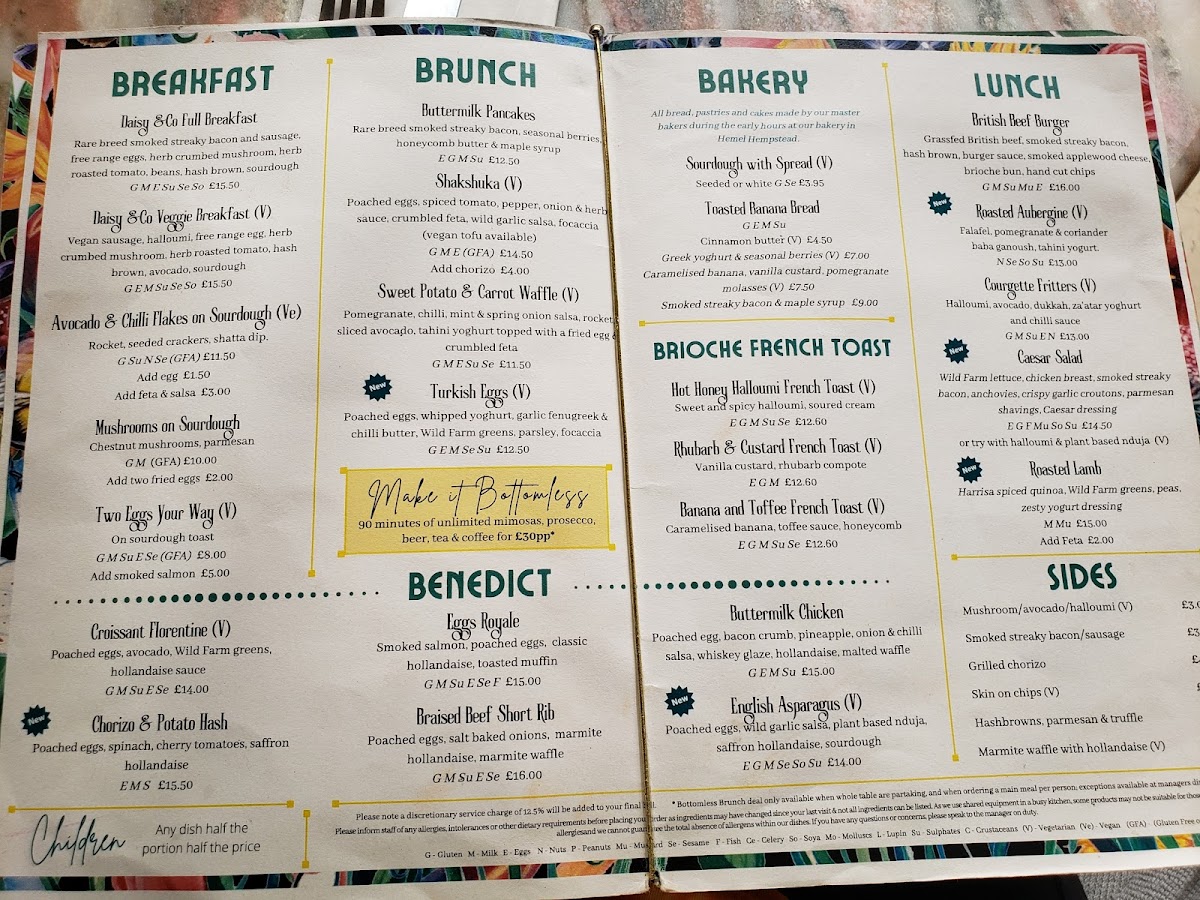 BREAKFAST
Daisy &Co Full Breakfast
Rare breed smoked streaky bacon and sausage,
free range eggs, herb crumbed mushroom, herb
roasted tomato, beans, hash brown, sourdough
G M E Su Se So £15.50
Daisy &Co Veggie Breakfast (V)
Vegan sausage, halloumi, free range egg, herb
crumbed mushroom, herb roasted tomato, hash
brown, avocado, sourdough
G E M Su Se So £15.50
Avocado & Chilli Flakes on Sourdough (Ve)
Rocket, seeded crackers, shatta dip.
G Su N Se (GFA) £11.50
Add egg £1.50
Add feta & salsa £3.00
Mushrooms on Sourdough
Chestnut mushrooms, parmesan
G M (GFA) £10.00
Add two fried eggs £2.00
Two Eggs Your Way (V)
On sourdough toast
G M Su E Se (GFA) £8.00
Add smoked salmon £5.00
BRUNCH
Buttermilk Pancakes
Rare breed smoked streaky bacon, seasonal berries,
honeycomb butter & maple syrup
E G M Su £12.50
Shakshuka (V)
Poached eggs, spiced tomato, pepper, onion & herb
sauce, crumbled feta, wild garlic salsa, focaccia
(vegan tofu available)
G M E (GFA) £14.50
Add chorizo £4.00
Sweet Potato & Carrot Waffle (V)
Pomegranate, chilli, mint & spring onion salsa, rocket,
sliced avocado, tahini yoghurt topped with a fried egg &
crumbled feta
G M E Su Se £11.50
New
Turkish Eggs (V)
Poached eggs, whipped yoghurt, garlic fenugreek &
chilli butter, Wild Farm greens, parsley, focaccia
G E M Se Su £12.50
Make it Bottomless
90 minutes of unlimited mimosas, prosecco,
beer, tea & coffee for £30pp*
BAKERY
All bread, pastries and cakes made by our master
bakers during the early hours at our bakery in
Hemel Hempstead.
Sourdough with Spread (V)
Seeded or white G Se £3.95
Toasted Banana Bread
G E M Su
Cinnamon butter (V) £4.50
Greek yoghurt & seasonal berries (V) £7.00
Caramelised banana, vanilla custard, pomegranate
molasses (V) £7.50
Smoked streaky bacon & maple syrup £9.00
BRIOCHE FRENCH TOAST
Hot Honey Halloumi French Toast (V)
Sweet and spicy halloumi, soured cream
E G M Su Se £12.60
Rhubarb & Custard French Toast (V)
Vanilla custard, rhubarb compote
E G M £12.60
Banana and Toffee French Toast (V)
Caramelised banana, toffee sauce, honeycomb
E G M Su Se £12.60
LUNCH
British Beef Burger
Grassfed British beef, smoked streaky bacon,
hash brown, burger sauce, smoked applewood cheese,
brioche bun, hand cut chips
G M Su Mu E £16.00
New
Roasted Aubergine (V)
Falafel, pomegranate & coriander
baba ganoush, tahini yogurt.
N Se So Su £13.00
Courgette Fritters (V)
Halloumi, avocado, dukkah, za'atar yoghurt
and chilli sauce
G M Su E N £13.00
New
Caesar Salad
Wild Farm lettuce, chicken breast, smoked streaky
bacon, anchovies, crispy garlic croutons, parmesan
shavings, Caesar dressing
E G F Mu So Su £14.50
or try with halloumi & plant based nduja (V)
New
Roasted Lamb
Harrisa spiced quinoa, Wild Farm greens, peas,
zesty yogurt dressing
M Mu £15.00
Add Feta £2.00
BENEDICT
Croissant Florentine (V)
Poached eggs, avocado, Wild Farm greens,
hollandaise sauce
G M Su E Se £14.00
New
Chorizo & Potato Hash
Poached eggs, spinach, cherry tomatoes, saffron
hollandaise
E M S £15.50
Eggs Royale
Smoked salmon, poached eggs, classic
hollandaise, toasted muffin
G M Su E Se F £15.00
Braised Beef Short Rib
Poached eggs, salt baked onions, marmite
hollandaise, marmite waffle
G M Su E Se £16.00
Buttermilk Chicken
Poached egg, bacon crumb, pineapple, onion & chilli
salsa, whiskey glaze, hollandaise, malted waffle
G E M Su £15.00
New
English Asparagus (V)
Poached eggs, wild garlic salsa, plant based nduja,
saffron hollandaise, sourdough
E G M Se So Su £14.00
SIDES
Mushroom/avocado/halloumi (V)
Smoked streaky bacon/sausage
Grilled chorizo
Skin on chips (V)
Hashbrowns, parmesan & truffle
Marmite waffle with hollandaise (V)
Children
Any dish half the
portion half the price
Please note a discretionary service charge of 12.5% will be added to your final bill.
Please inform staff of any allergies, intolerances or other dietary requirements before placing your
allergies and we cannot
G - Gluten M - Milk E - Eggs N - Nuts P - Peanuts Mu - Mustard Se - Sesame F - Fish Ce - Celery So - Soya Mo - Molluscs L - Lupin Su - Sulphates C - Crustaceans (V) - Vegetarian (Ve) - Vegan (GFA) - (Gluten Free
* Bottomless Brunch deal only available when whole table are partaking, and when ordering a main meal per person; exceptions available at managers
order as ingredients may have changed since your last visit & not all ingredients can be listed. As we use shared equipment in a busy kitchen, some products may not be suitable for those
the total absence of allergens within our dishes. If you have any questions or concerns, please speak to the manager on duty.